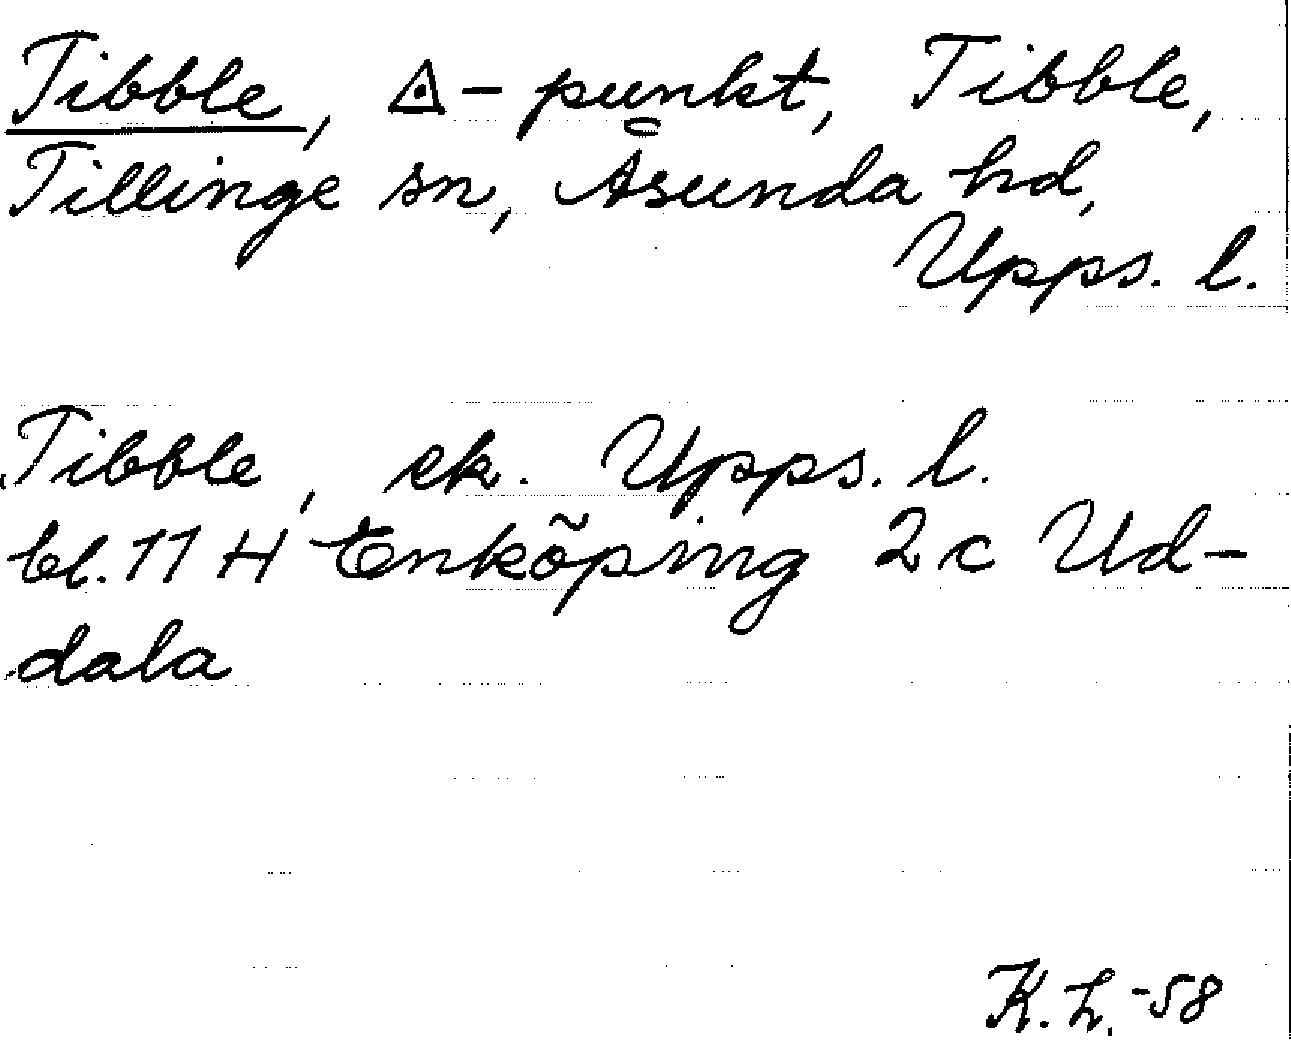 Tibble, △-punkt, Tibble,
Tillinge sn, Åsunda hd,
Upps. l.
Tibble, ek. Upps. l.
bl. 11 H Enköping 2c Ud-
dala
K. L. -58